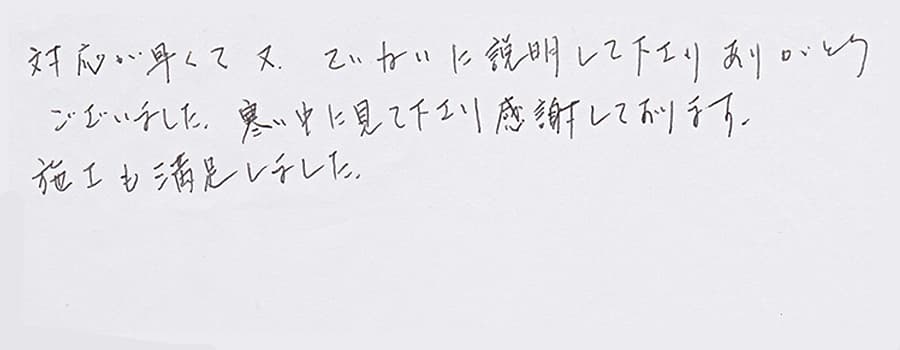 対応が早くて又、ていねいに説明して下さりありがとう
ございました。寒い中に見て下さり感謝しております。
施工も満足しました。